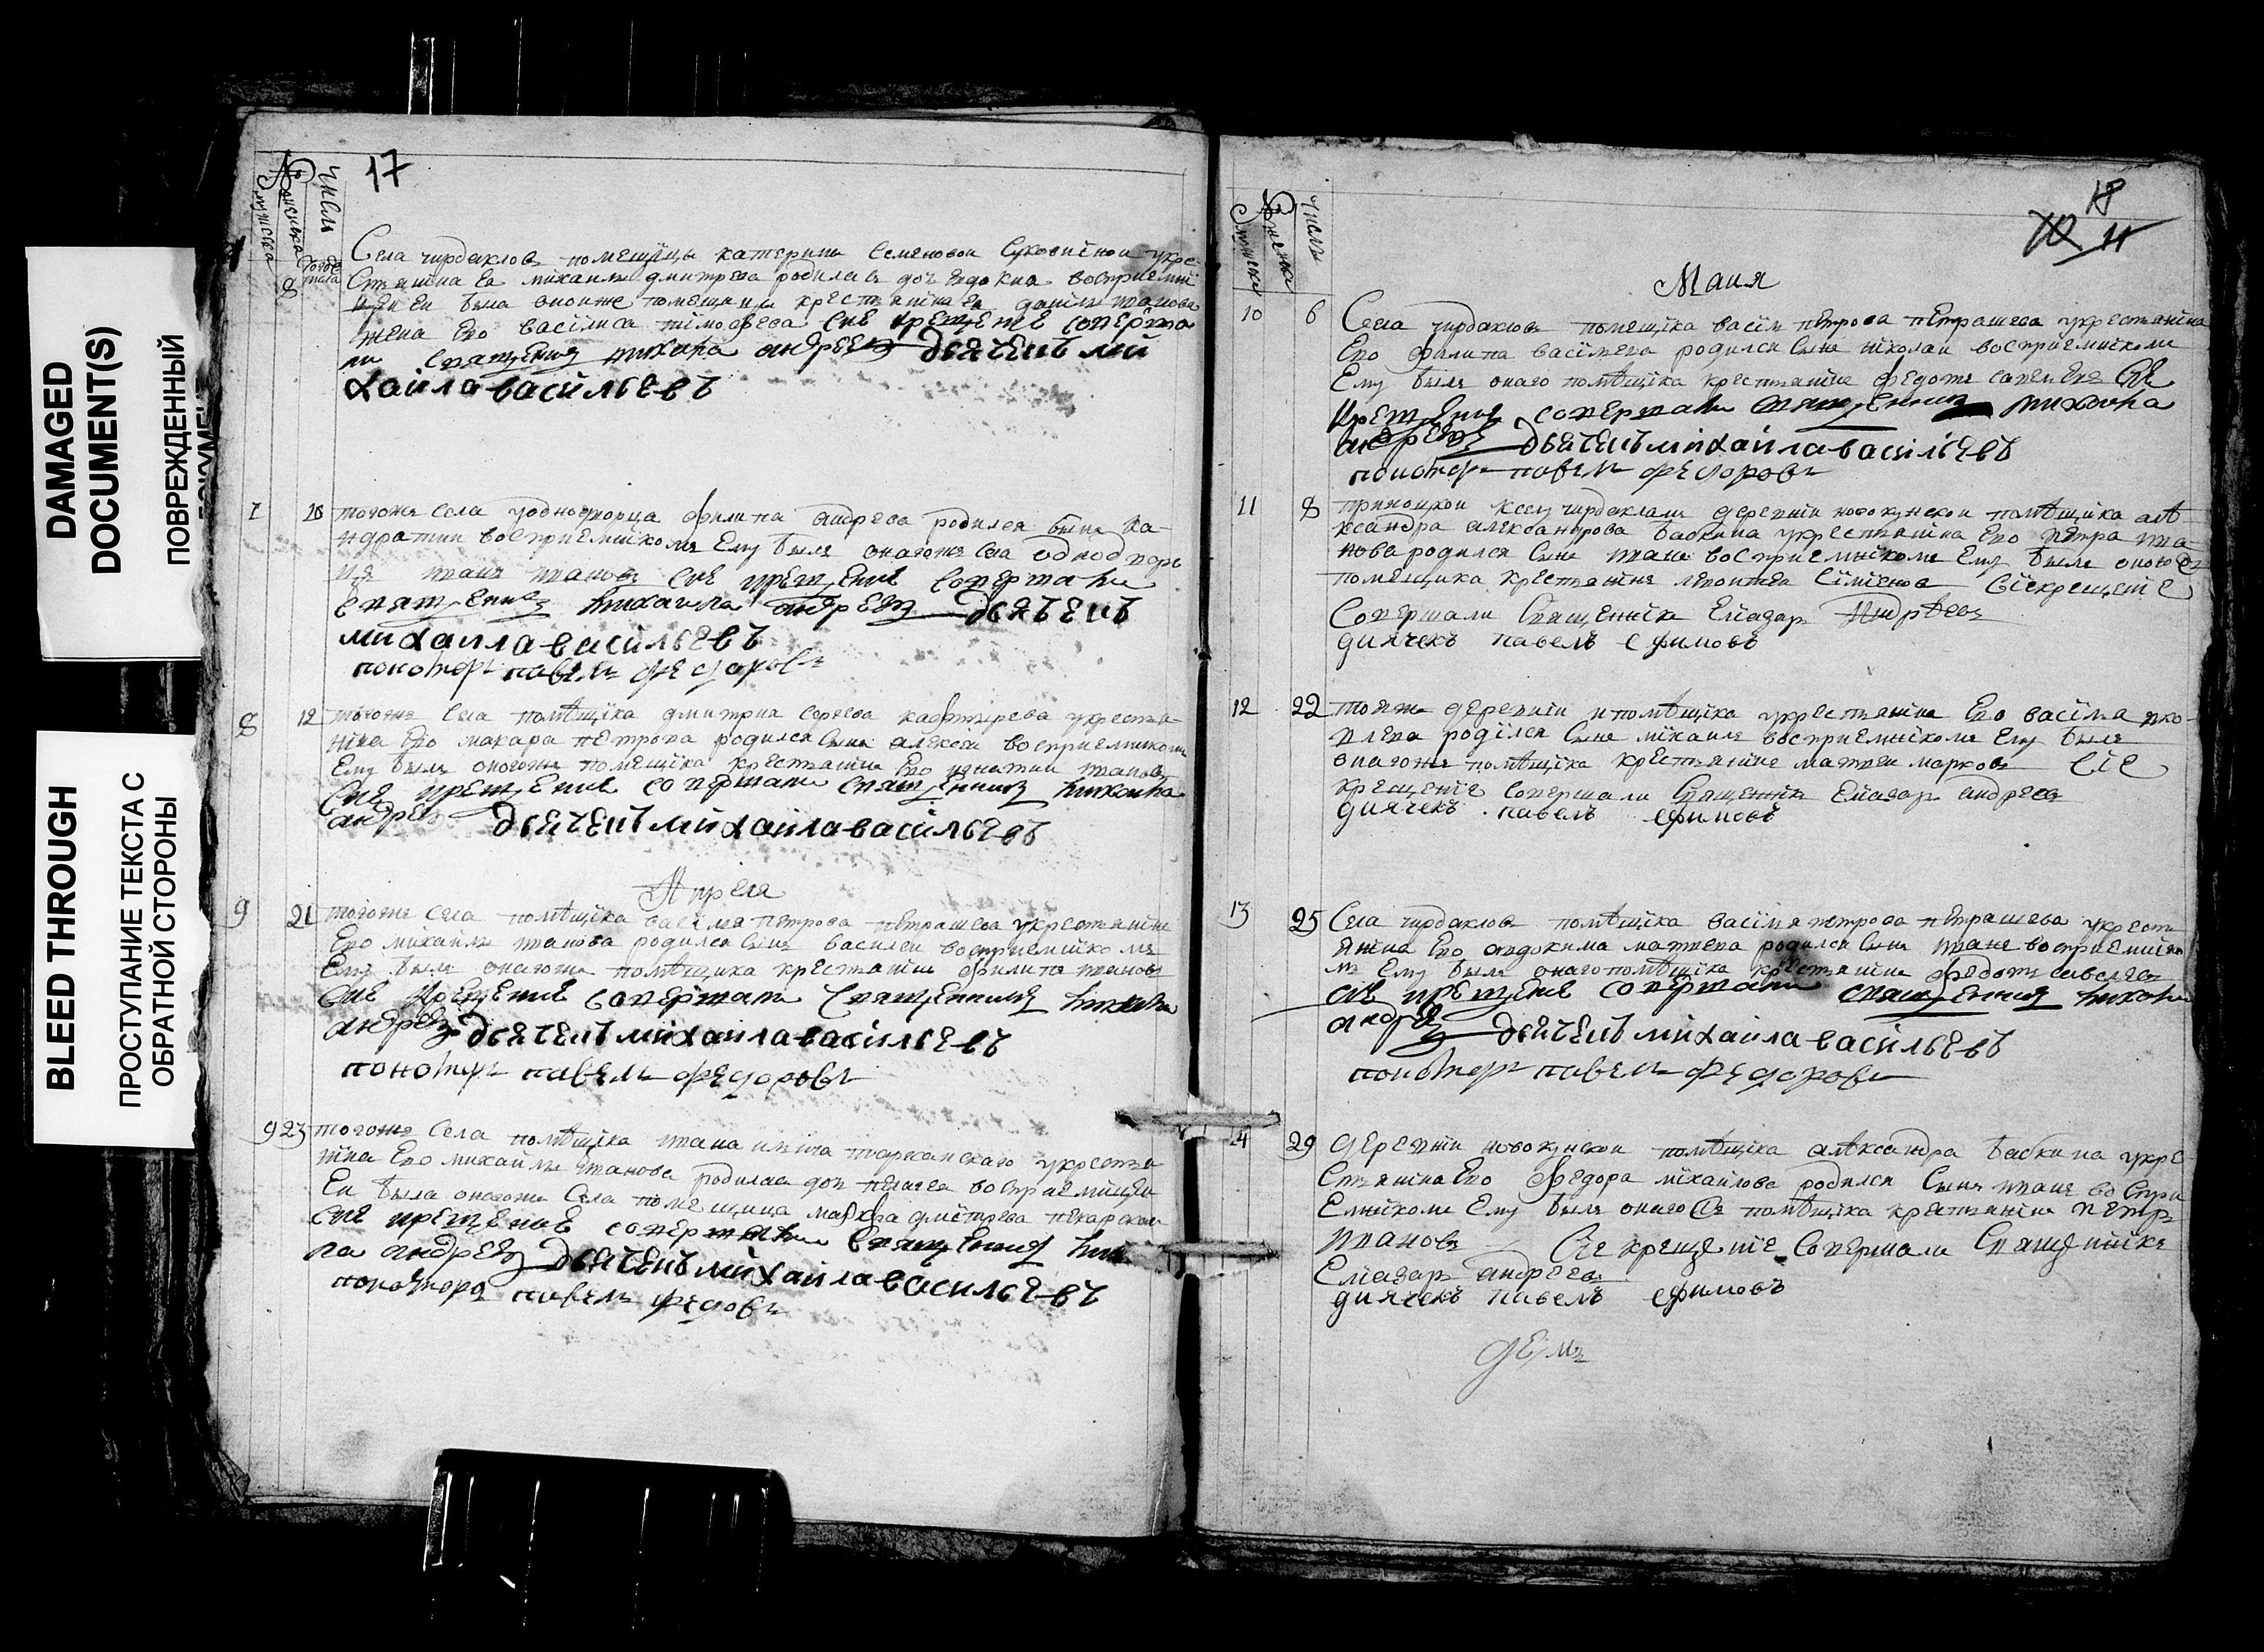 DAMAGED
DOCUMENT(S)
ПОВРЕЖДЕННЫЙ
BLEED THROUGH
ПРОСТУПАНИЕ ТЕКСТА С
ОБРАТНОЙ СТОРОНЫ
17
числа
Села чирдаклов помещицы катерины Семеновой укре-
8 стянина Ея михаила дмитрева родилась доч Евдокиа восприемни
цеи Еи была оноиже помещицы крестянина Ея данилы иванова
жена Ево василиса тимофеева сие крещение соверша
ли священник андреев дьячекъ ми
хаила васильевъ
7 10 тогожъ села уоднодворца филипа андреева родился сынъ ка-
ндратии восприемникомъ Ему былъ оногожъ села однодворе
цъ иванъ ивановъ сие крещение совершали
священникъ андреевъ дьячекъ
михаила васильевъ
пономарь павелъ федоровъ
8 12 тогожъ села помѣщика дмитрия укрестья-
нина Ево макара петрова родился сынъ алексеи восприемникомъ
Ему былъ оногожъ помещика крестянинъ Ево игнатии ивановъ
сие крещение совершали священникъ
андреевъ дьячекъ михаила васильевъ
Апреля
9 21 тогожъ села помѣщика василья петрова петрашева укрестянина
Ево михаилы иванова родился сынъ василеи восприемникомъ
Ему былъ оногожъ помѣщика крестянинъ филипъ ивановъ
сие крещение совершали священникъ
андреевъ дьячекъ михаила васильевъ
пономарь павелъ федоровъ
9 23 тогожъ села помѣщика ивана укрестья
нина Ево михаилы иванова родилась доч пелагея восприемницеи
Еи была оногожъ села помещица марфа дмитрева
сие крещение совершали священникъ
ла андреевъ дьячекъ михаила васильевъ
пономарь павелъ
числы
18
11
Маия
10 6 Села чирдаклов помещика василя петрова петрашева укрестянина
Ево филипа василева родился сынъ николаи восприемникомъ
Ему былъ оного помѣщика крестянинъ федотъ савелевъ сие
крещение совершали священникъ
андреевъ дьячекъ михаила васильевъ
пономарь павелъ федоровъ
11 8 приходкои кселу чирдаклам деревни новокунскои помѣщика алѣ
ксандра александрова бабкина укрестянина Ево петра ива
нова родился сынъ иванъ восприемникомъ Ему былъ оногожъ
помещика крестянинъ леонтеи симионовъ сиекрещение
совершали священникъ Елиазаръ андрѣевъ
диячекъ павелъ ефимовъ
12 22 тояжъ деревни ипомѣщика укрестянина Ево василя яко-
влева родился сынъ михаила восприемникомъ Ему былъ
оногожъ помѣщика крестянинъ матвеи марковъ сие
крещение совершали священникъ Елиазаръ андреевъ
диячекъ павелъ ефимовъ
13 25 Села чирдаклов помѣщика василя петрова петрашева укрест
янина Ево авдокима матвева родился сынъ иванъ восприемнико
мъ Ему былъ оногопомѣщика крестянинъ федотъ савелевъ
сие крещение совершали священникъ
андреевъ дьячекъ михаила васильевъ
пономарь павелъ федоровъ
14 29 деревни новокунскои помѣщика алѣксандра бабкина укре
стянина Ево федора михаилова родился сынъ иванъ во спри
емникомъ Ему былъ оного же помѣщика крестянинъ петръ
ивановъ Сие крещение совершали священникъ
Елиазаръ андреевъ
диячекъ павелъ ефимовъ